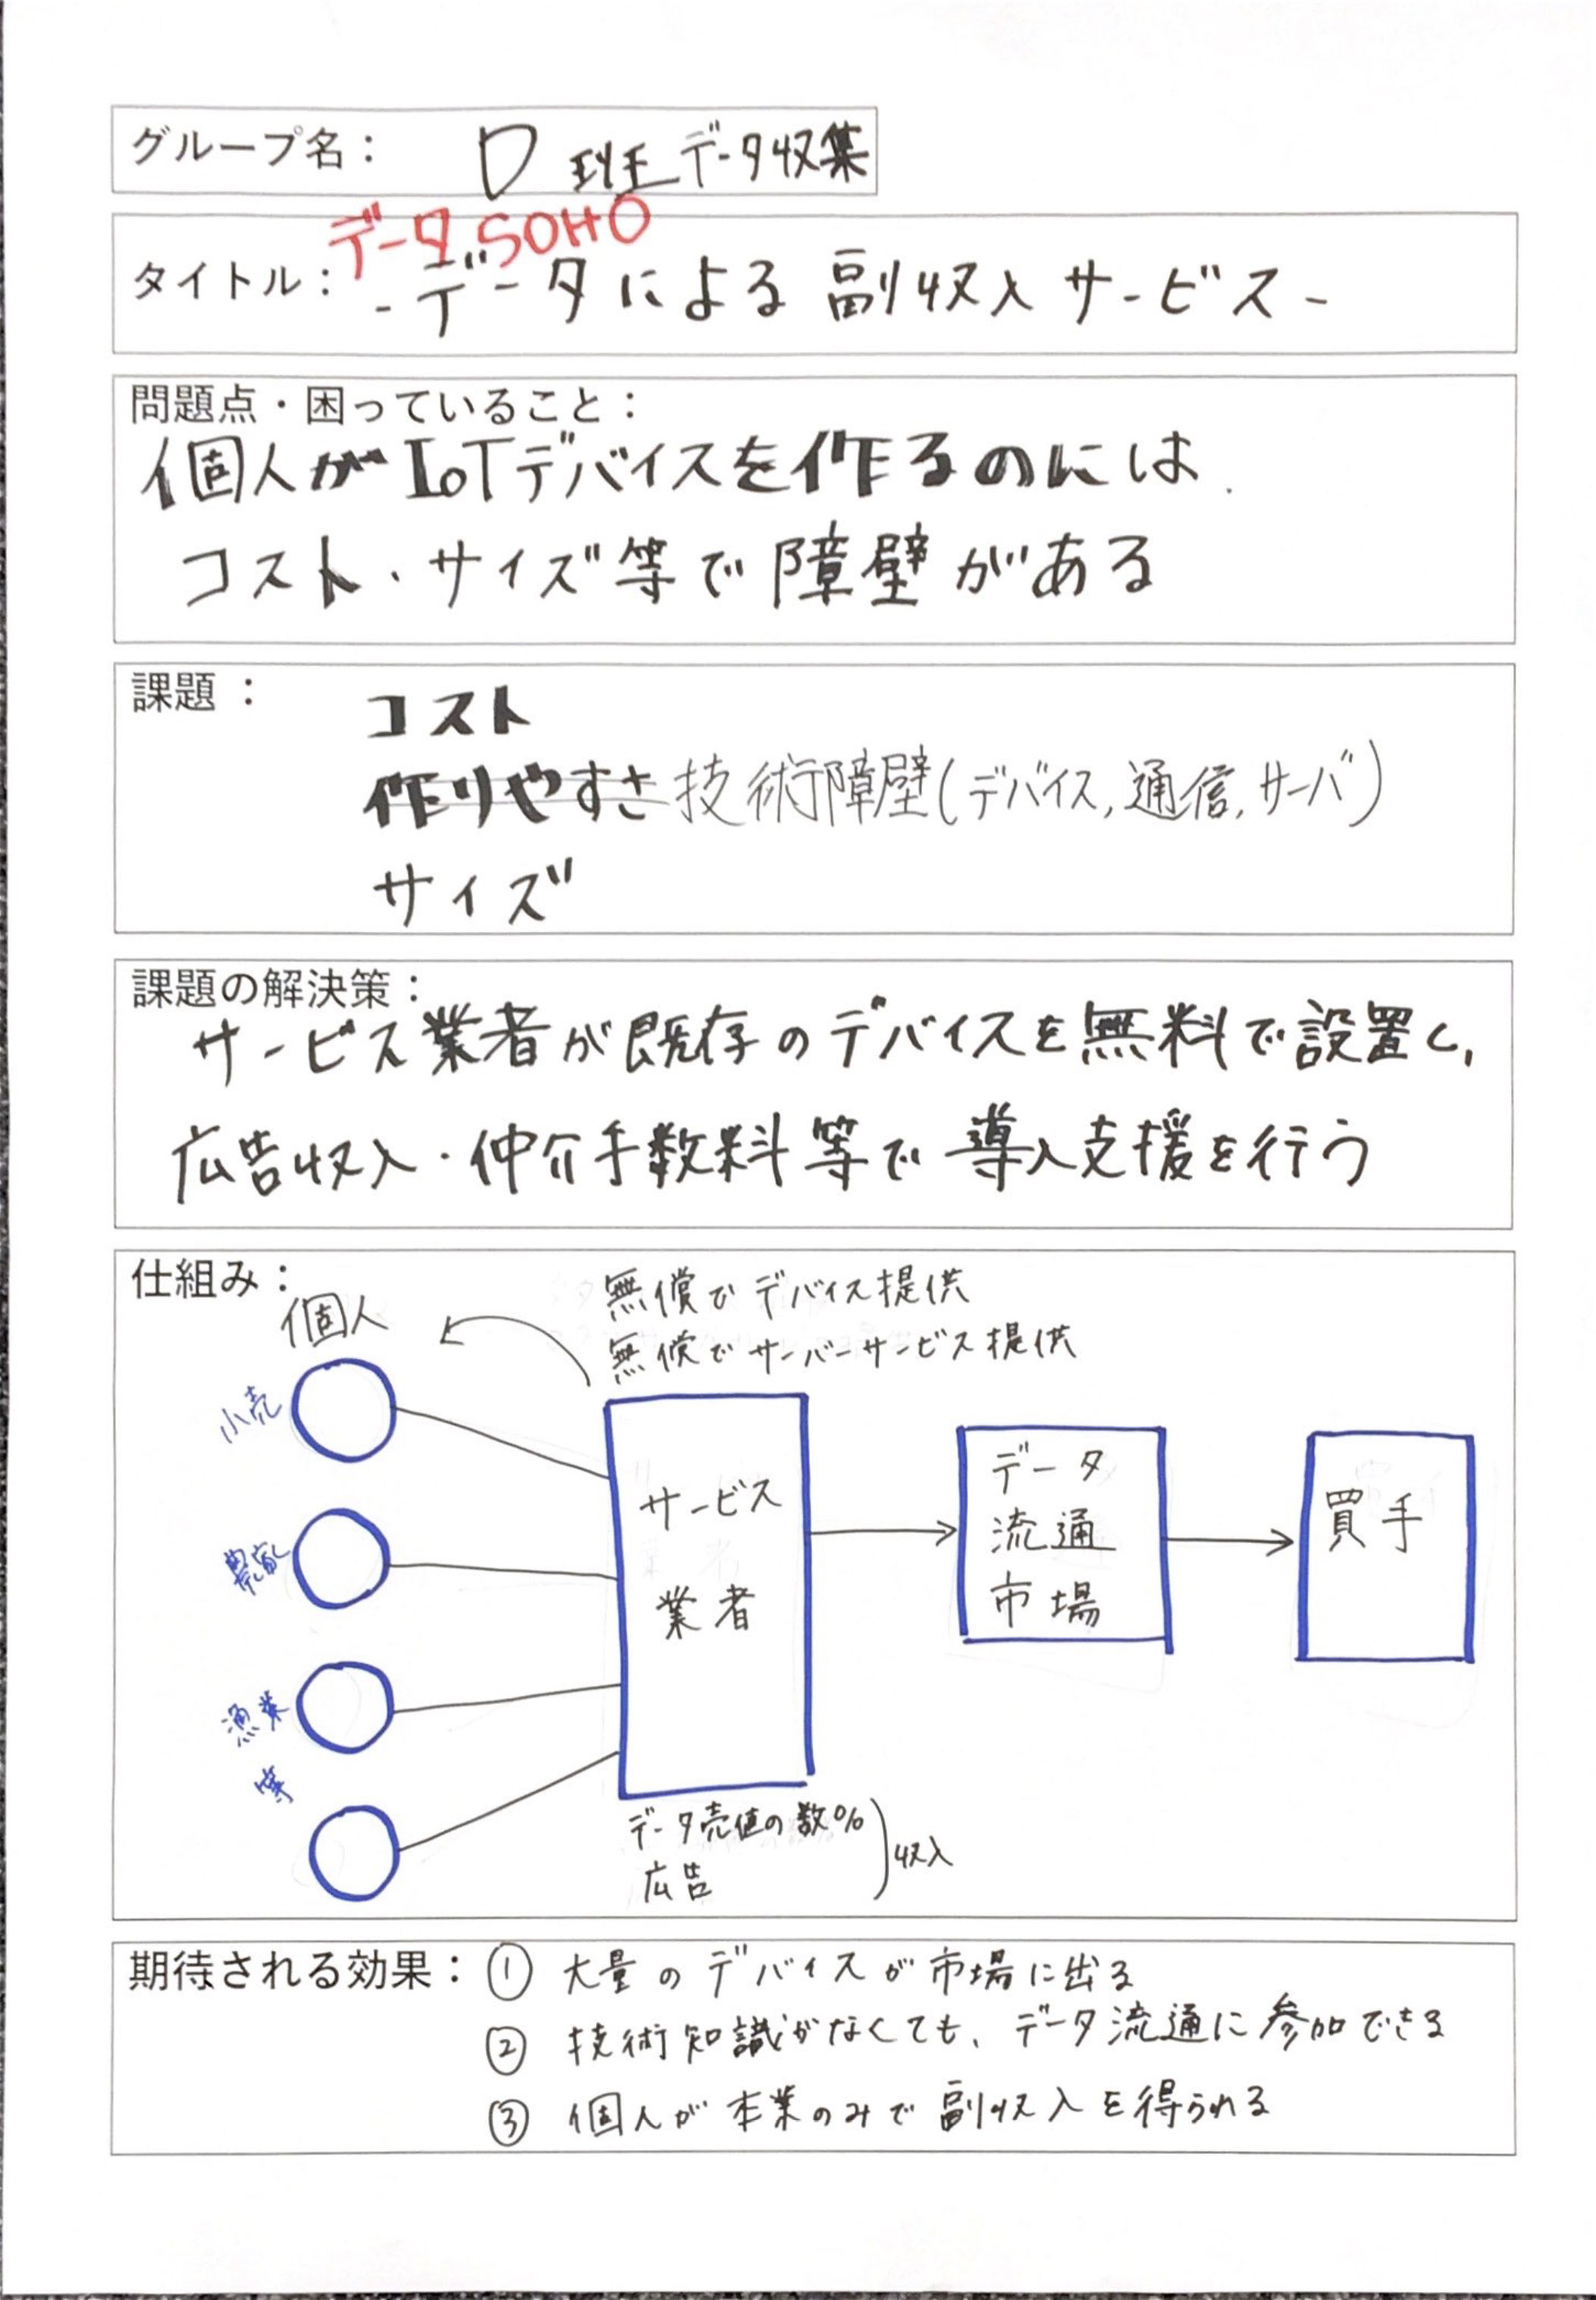 グループ名： D 班 データ収集
データSOHO
タイトル： -データによる副収入サービス-
問題点・困っていること：
個人がIoTデバイスを作るのには
コスト・サイズ等で障壁がある
課題：
コスト
作りやすさ 技術障壁(デバイス,通信,サーバ)
サイズ
課題の解決策：
サービス業者が既存のデバイスを無料で設置し,
広告収入・仲介手数料等で導入支援を行う
仕組み：
個人
無償でデバイス提供
無償でサーバーサービス提供
小売
農家
漁業
等
サービス
業者
データ
流通
市場
買手
データ売値の数%
広告
収入
期待される効果： ① 大量のデバイスが市場に出る
② 技術知識がなくても、データ流通に参加できる
③ 個人が本業のみで副収入を得られる